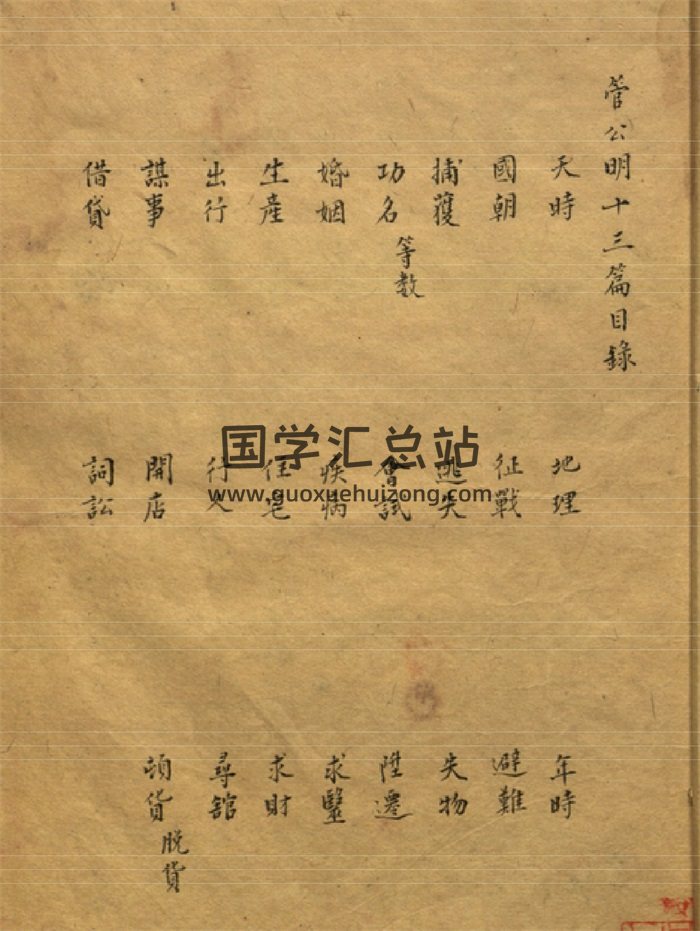 管公明十三篇目錄
天時 地理 年時
國朝 征戰 避難
捕獲 逃失 失物
功名等数 會試 陞遷
婚姻 疾病 求醫
生產 住宅 求財
出行 行人 尋館
謀事 開店 頓貨脱貨
借貸 詞訟
国学汇总站
www.guoxuehuizong.com